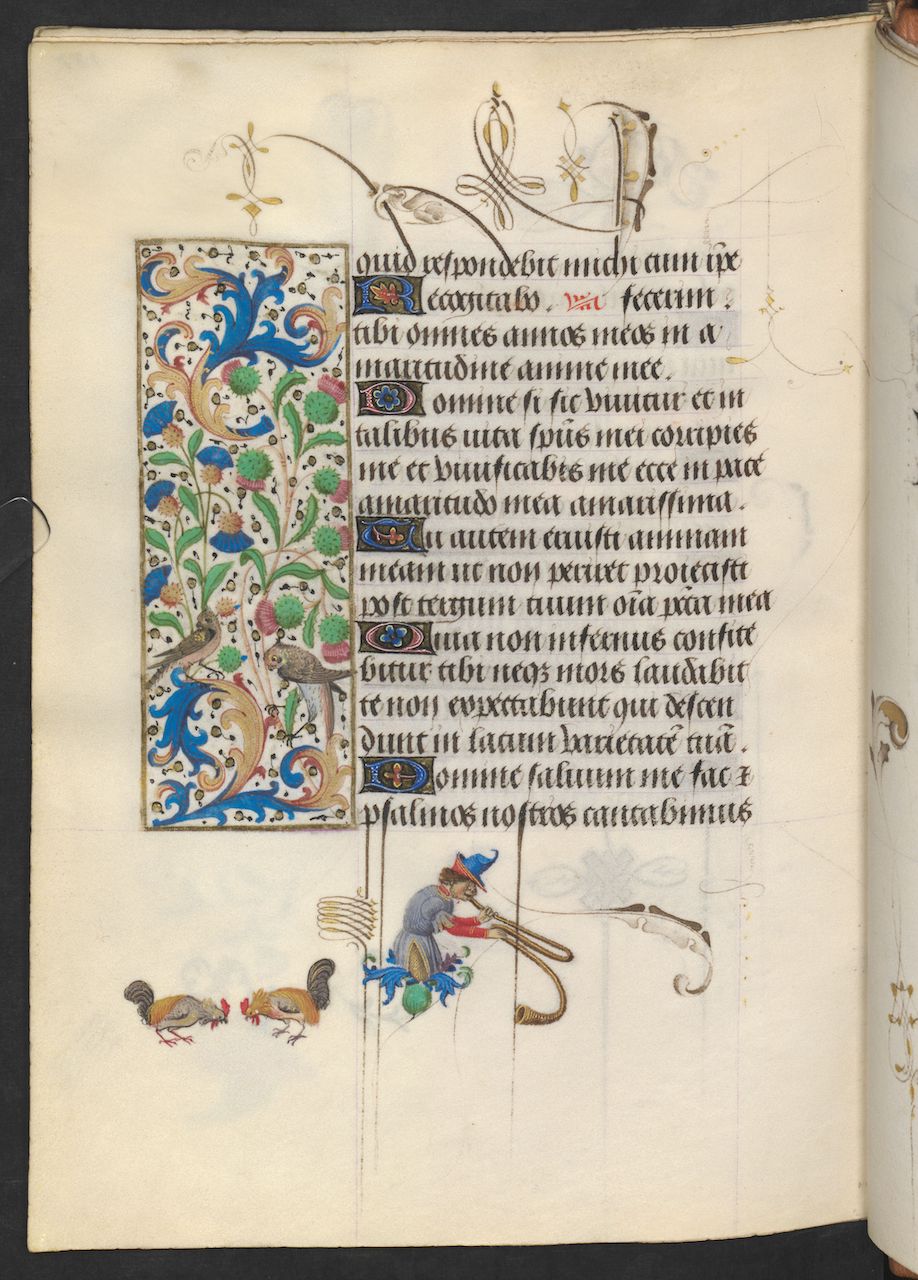 quid respondebit michi cum ip̄e
Recogitabo. fecerim.
tibi omnes annos meos in a
maritudine anime mee.
Domine si sic viuitur et in
talibus uita sp̄us mei corripies
me et viuificabis me ecce in pace
amaritudo mea amarissima.
Tu autem eruisti animam
meam ut non periret proiecisti
post tergum tuum oīa pc̄ca mea
Quia non infernus confite
bitur tibi neqȝ mors laudabit
te non expectabunt qui descen
dunt in lacum veritatē tuā.
Domine saluum me fac ⁊
psalmos nostros cantabimus